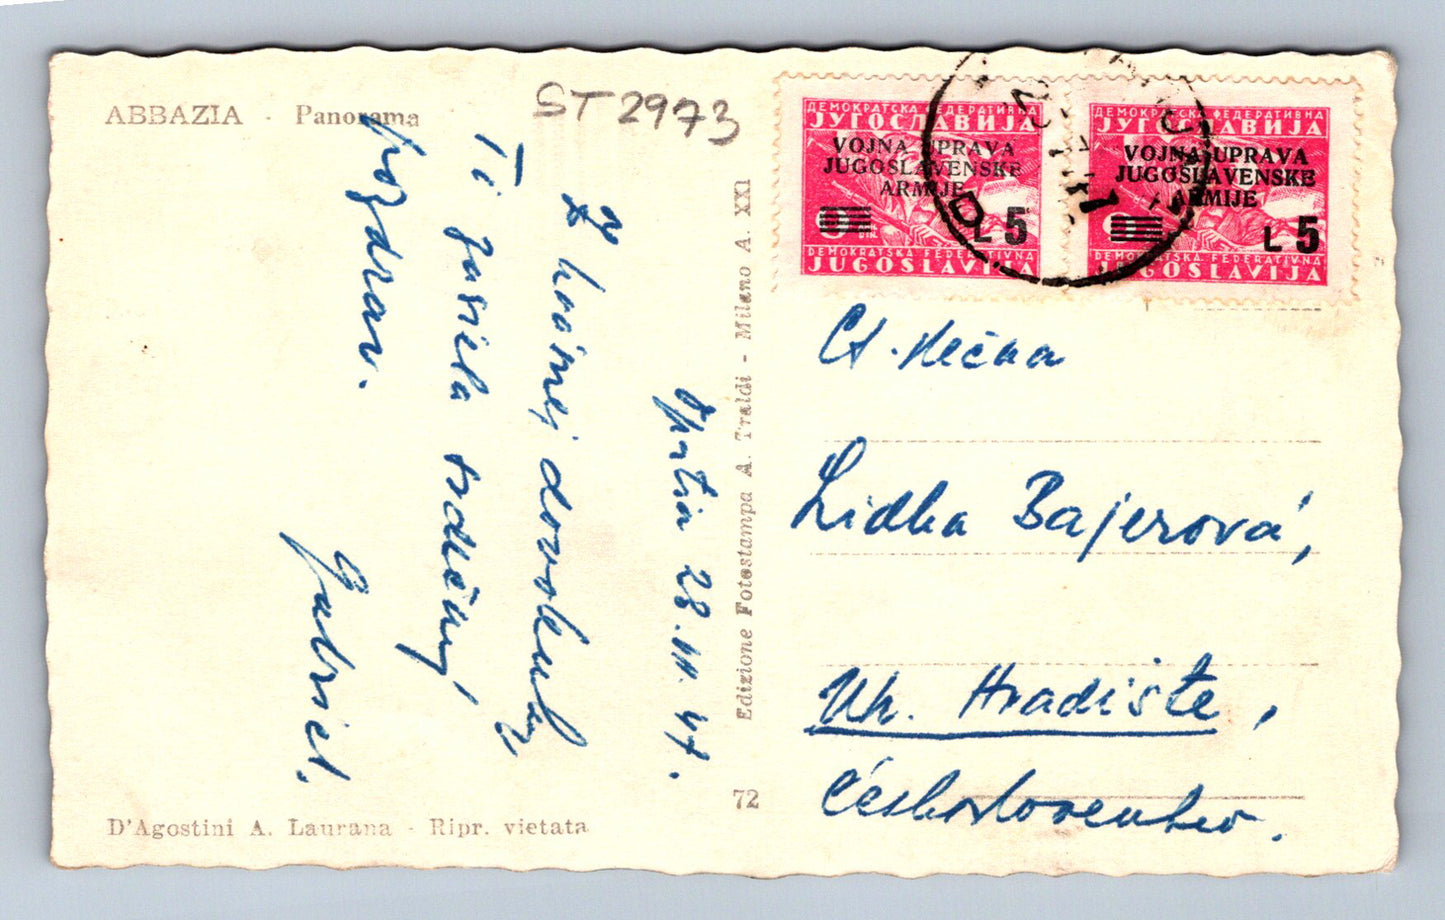 ABBAZIA - Panorama
ST2973
Opatia 28.VII.47.
Z hojnej dovolenky
Ti zasiela srdečný
pozdrav.
Gabriel.
D'Agostini A. Laurana - Ripr. vietata
Edizione Fotostampa A. Traldi - Milano A. XXI
72
ДЕМОКРАТСКА ФЕДЕРАТИВНА
ЈУГОСЛАВИЈА
VOJNA UPRAVA
JUGOSLAVENSKE
ARMIJE
L 5
DEMOKRATSKA FEDERATIVNA
JUGOSLAVIJA
ДЕМОКРАТСКА ФЕДЕРАТИВНА
ЈУГОСЛАВИЈА
VOJNA UPRAVA
JUGOSLAVENSKE
ARMIJE
L 5
DEMOKRATSKA FEDERATIVNA
JUGOSLAVIJA
Ct. slečna
Lidka Bajerová,
Uh. Hradište,
Československo.